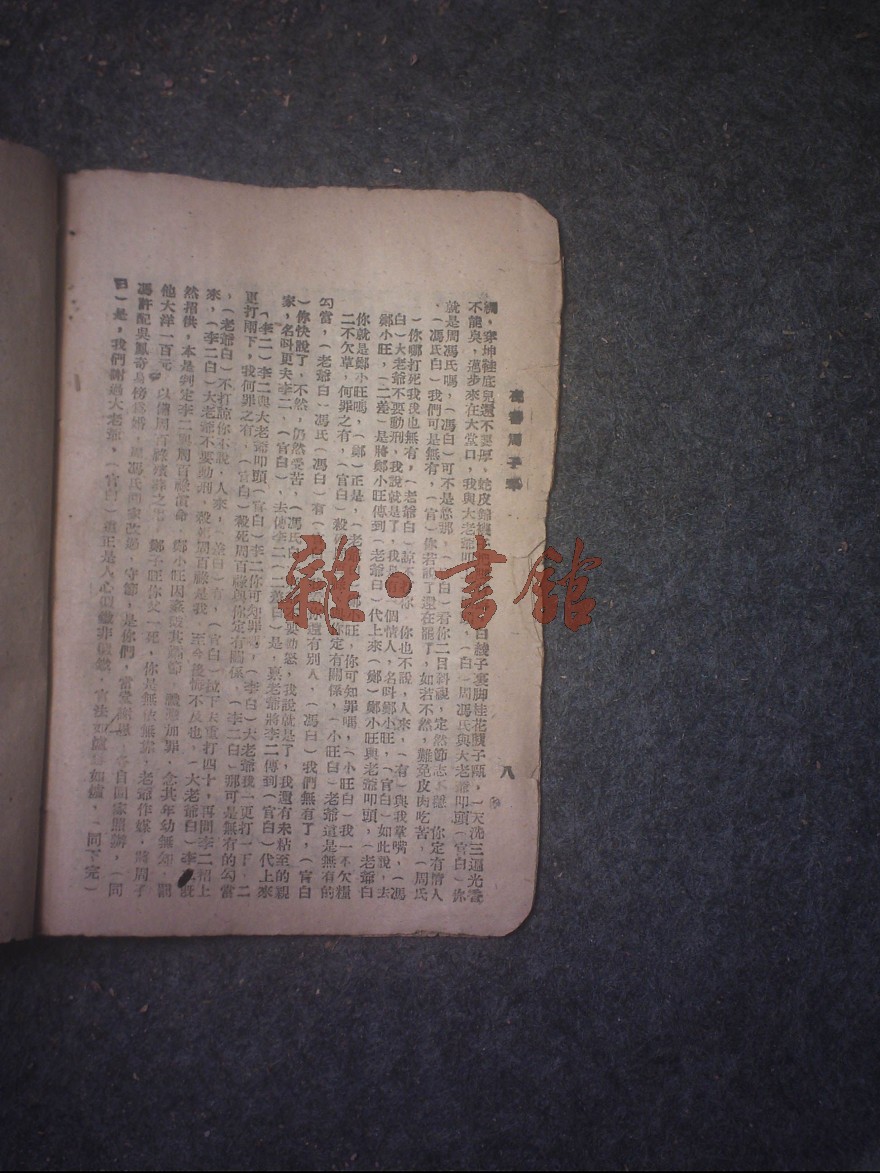 八
不能臭，邁步來在大堂口，我與大老爺叩 （白）周馮氏與大老爺叩頭（官白）你
就是周馮氏嗎，（馮白）可不是您那，（ 白）看你二目斜視，定然節志不 你定有情人
，（馮氏白）我們可是無有，（官）你若 了還在罷了，如若不然，難免皮肉吃苦，（周氏
）你哪打死我我也無有，（老爺白 諒不 你，你也不說，人來，（有）與我掌嘴，（馮
白）大老爺不要動刑，我說就是了，我與 一個情人，名叫鄭小旺，（官白）如此說，去
鄭小旺，（二差）是將鄭小旺傳到（老爺白）代上來（鄭）鄭小旺與老爺叩頭，（老爺白
你就是鄭小旺嗎，（鄭）正是，（老 旺，你可知罪嗎，（小旺白）我一不欠糧
二不欠草，何罪之有，（官白）殺 你定有關係，（小旺白）老爺這是無有的
勾當，（老爺白）馮氏（馮白）有（ 你還有別人，（馮白）我們無有了，（官白
）你快說了，不然，仍然受苦，（馮氏白 要動怒，我說就是了，我還有未粘至的親
家，名叫更夫李二，（官白），去傳李二（二差白）是，稟老爺將李二傳到（官白）代上來
，（李二）李二與大老爺叩頭（官白）李二你可知罪 （李白）大老爺我一更打一下，二
更打兩下，我何罪之有，（官白）殺死周百祿與你定有關係，（李二白）那可是無有的勾當
，（老爺白）不打諒你不說，人來，（差白）有，（官白）拉下去重打四十，再問李二招上
來，（李二白）大老爺不要動刑，殺死周百祿是我 至今後悔不及也，（大老爺白）李二既
然招供，本是判定李二與周百祿償命 鄭小旺因姦 其 節 加罪，念其年幼無知，罰
他大洋一百元，以備周百祿殯葬之 鄭子旺你父一死，你是無依無靠，老爺作媒，將周子
馮許配吳鳳奇 馮氏回家改節 守節，是你們， 自回家照辦，（同
白）是，我們謝過大老爺，（官白） 正是人心似鐵非 鐵，官法如爐 如爐，（同下完）
雜·書館